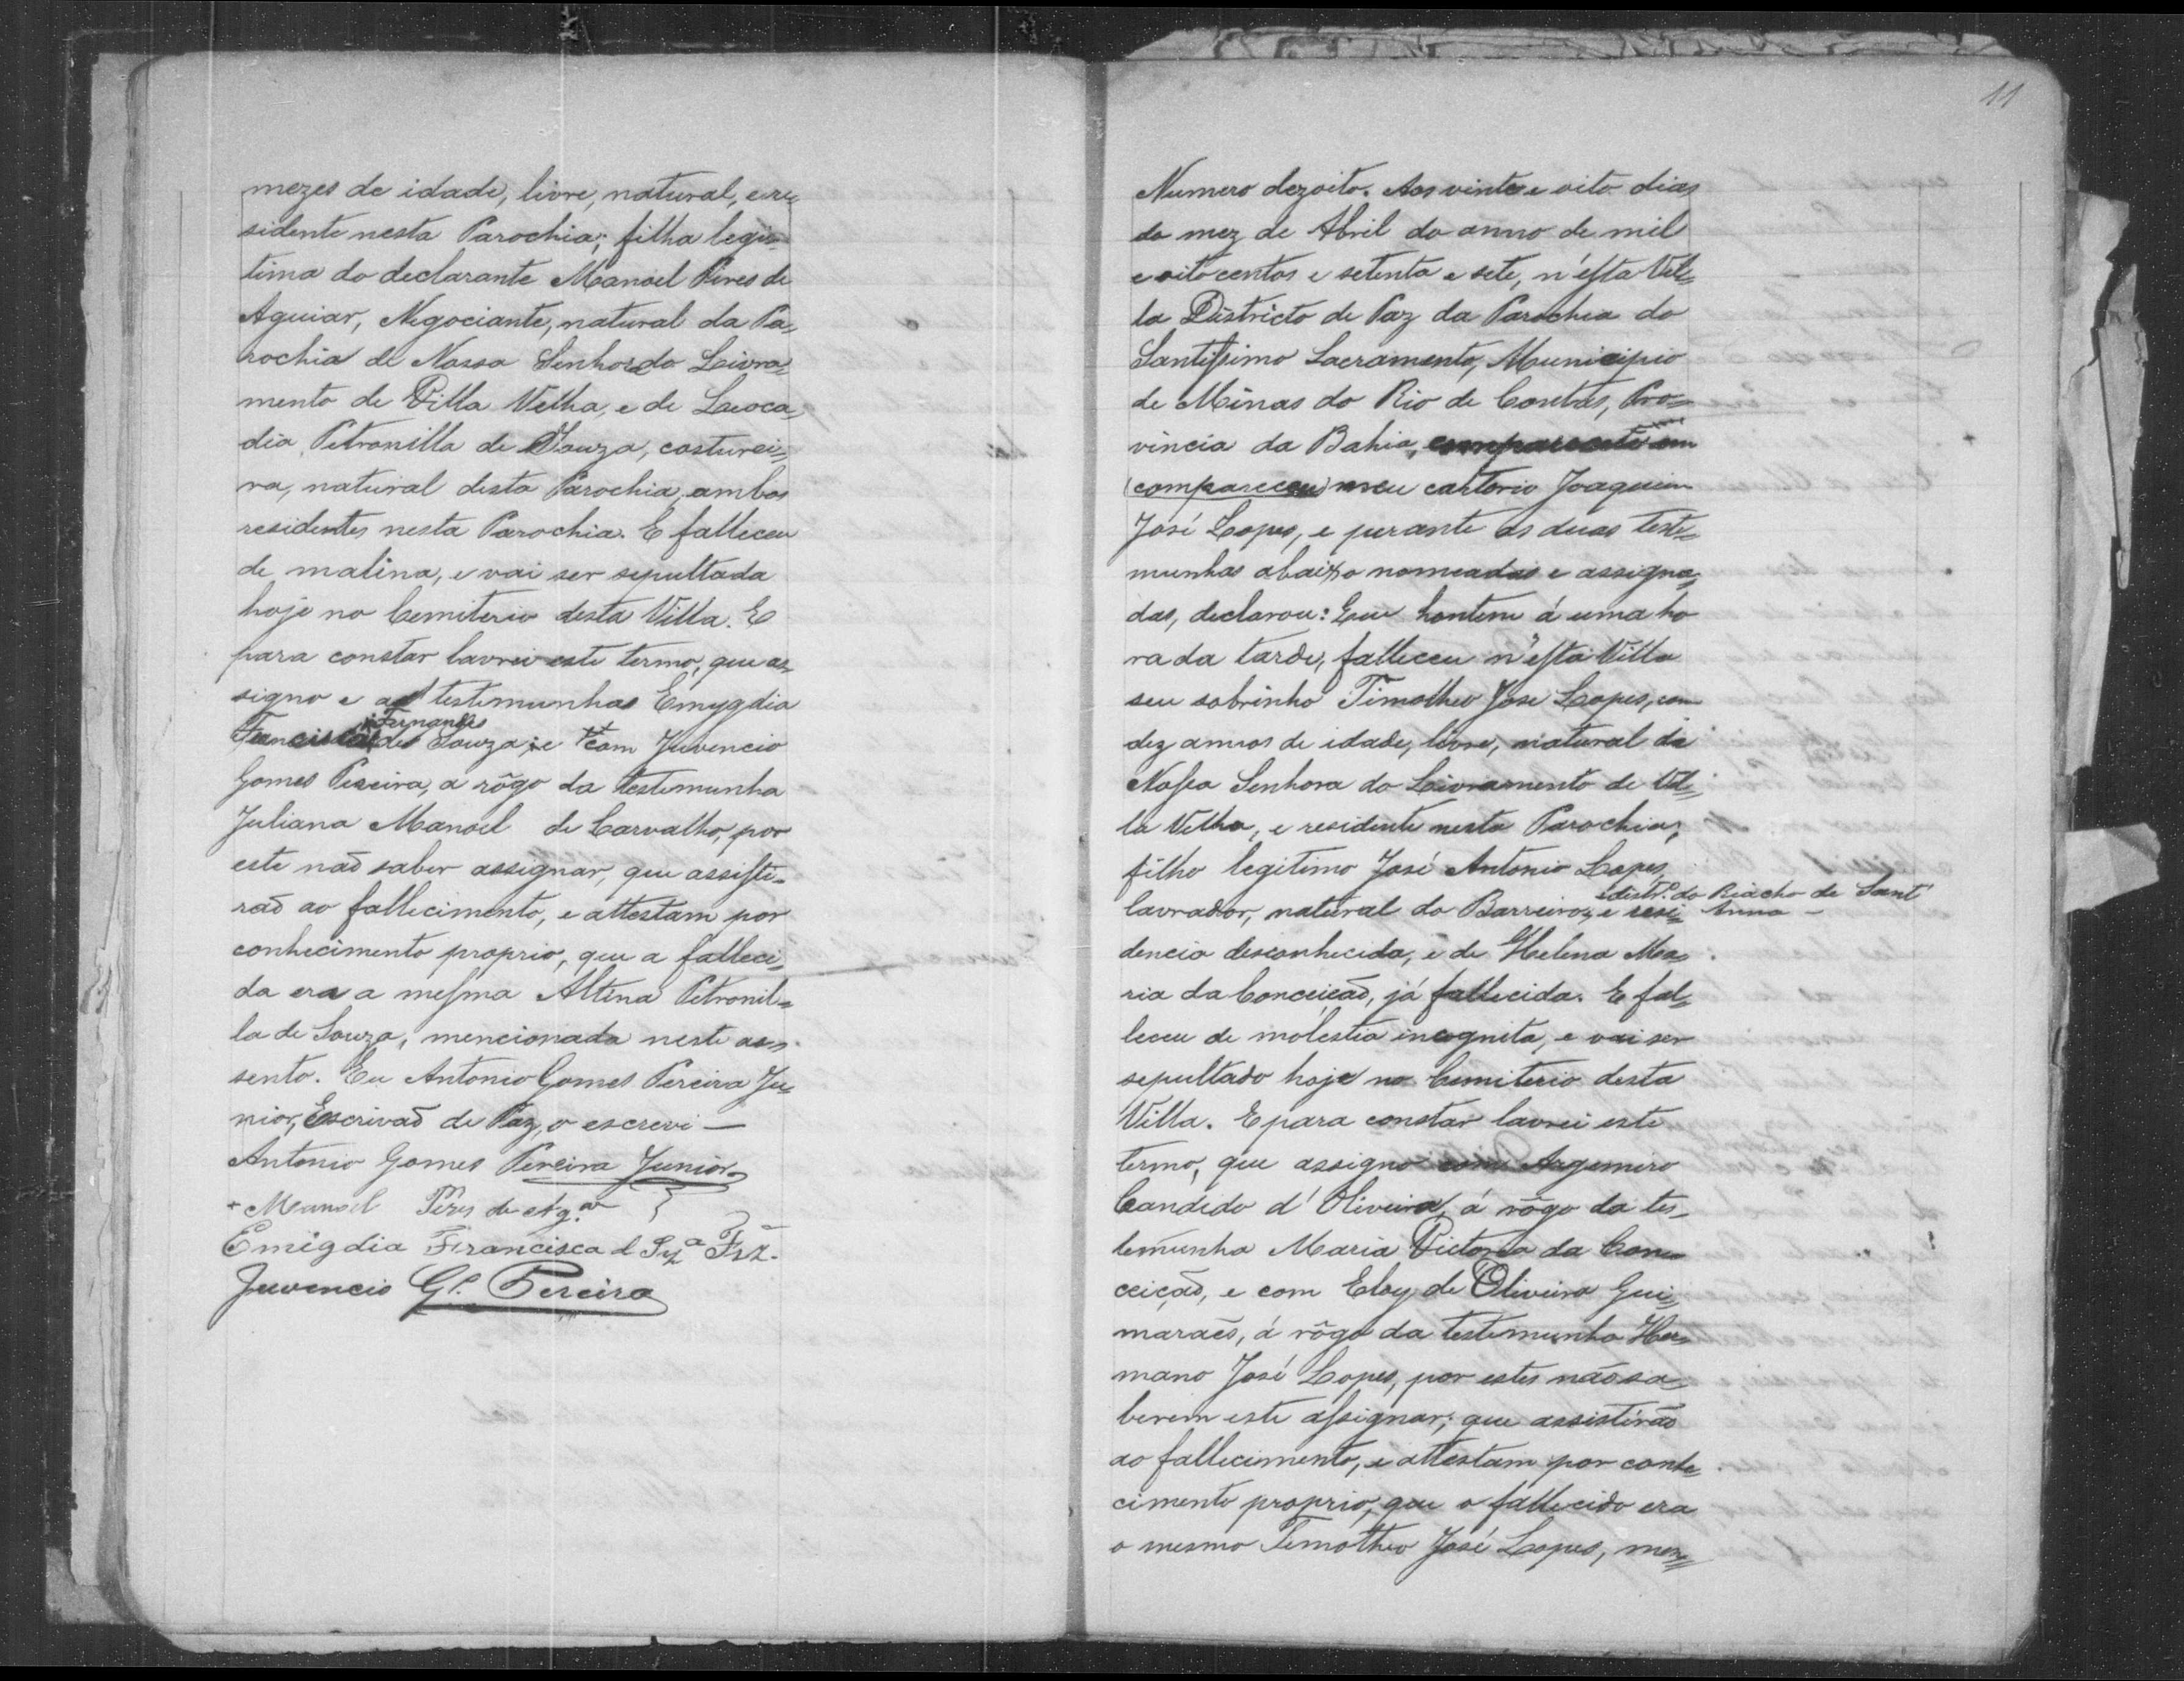 mezes de idade, livre, natural, e re,,
sidente nesta Parochia; filha legi=
tima do declarante Manoel Pires de
Aguiar, Negociante, natural da Pa,,
rochia de Nossa Senhora do Livra=
mento de Villa Velha, e de Leoca,,
dia Petronilla de Souza, costurei=
ra, natural desta Parochia, ambos
residentes nesta Parochia. E falleceu
de malina, e vai ser sepultada
hoje no Cemiterio desta Villa. E
para constar lavrei este termo, que as,,
signo e as testemunhas Emygdia
Fernandes
Francisca de Souza; e com Juvencio
Gomes Pereira, a rôgo da testemunha
Juliana Manoel de Carvalho, por
este naõ saber assignar, que assisti-
raõ ao fallecimento, e attestam por
conhecimento proprio, que a falleci,,
da era a mesma Altina Petronil=
la de Souza, mencionada neste as,,
sento. Eu Antonio Gomes Pereira Ju,,
nior, Escrivaõ de Paz, o escrevi —
Antonio Gomes Pereira Junior
+ Manoel Pires de Ag.ar
Emigdia Francisca d Sza Frz.
Juvencio Gs. Pereira
11
Numero dezoito. Aos vinte e oito dias
do mez de Abril do anno de mil
e oitocentos e setenta e sete, n'esta Vil=
la Districto de Paz da Parochia do
Santissimo Sacramento, Municipio
de Minas do Rio de Contas, Pro=
vincia da Bahia, em
(compareceu) meu cartorio Joaquim
José Lopes, e perante as duas teste=
munhas abaixo nomeadas e assigna,,
das, declarou: Que hontem á uma ho
ra da tarde, falleceu n'esta Villa
seu sobrinho Timotheo José Lopes, com
dez annos de idade, livre, natural da
Nossa Senhora do Livramento de Vil,,
la Velha, e residente nesta Parochia;
filho legitimo José Antonio Lopes,
distr.o do Riacho de Sant'
lavrador, natural do Barreiro, e resi= Anna —
dencia desconhecida, e de Helena Ma,,
ria da Conceicaõ, já fallecida. E fal,,
leceu de molestia incognita, e vai ser
sepultado hoje no Cemiterio desta
Villa. E para constar lavrei este
termo, que assigno com Argemiro
Candido d'Oliveira, á rôgo da tes-
temunha Maria Victoria da Con=
ceição, e com Eloy de Oliveira Gui,,
maraẽs, á rôgo da testemunha Her=
mano José Lopes, por estes não sa,,
berem este assignar; que assistiraõ
ao fallecimento, e attestam por conhe,,
cimento proprio, que o fallecido era
o mesmo Timotheo José Lopes, men=